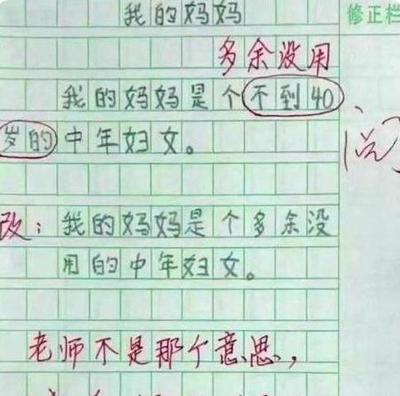 我的妈妈
修正栏
多余没用
我的妈妈是个不到40
岁的中年妇女。
改：我的妈妈是个多余没
用的中年妇女。
老师不是那个意思，